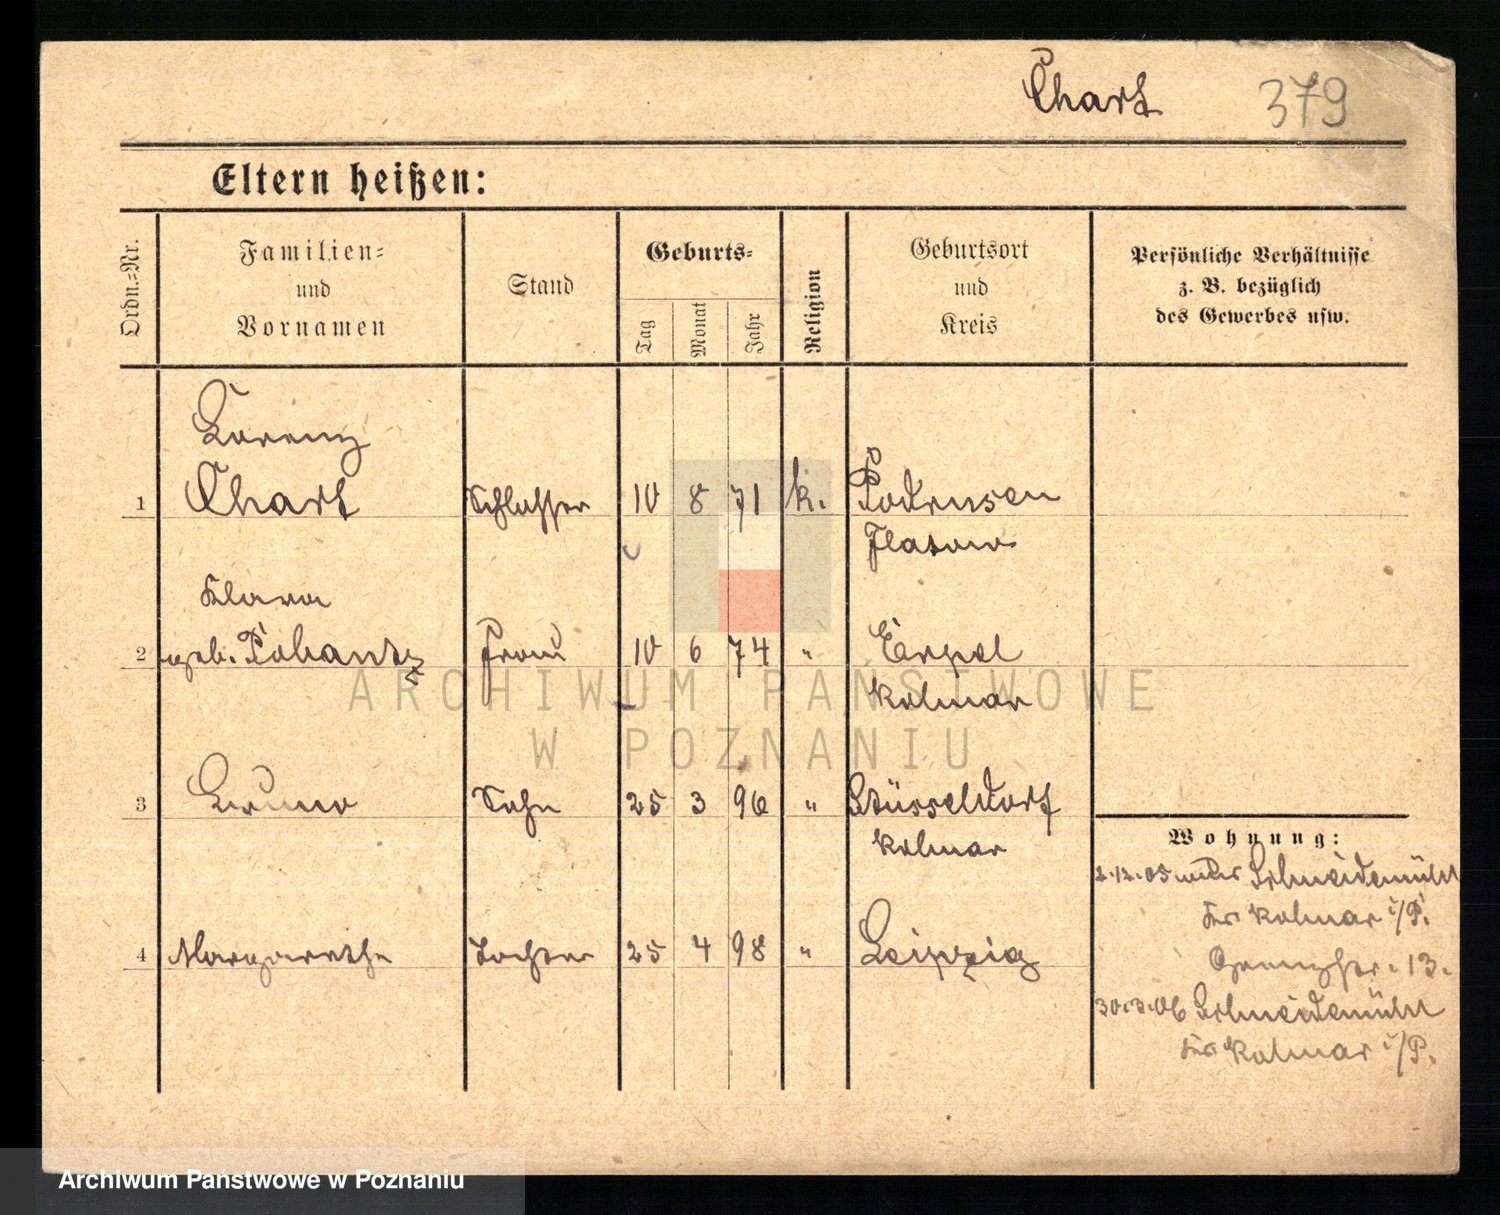 Chart 379
Eltern heißen:
Ordn.-Nr.
Familien-
und
Vornamen
Stand
Geburts-
Tag
Monat
Jahr
Religion
Geburtsort
und
Kreis
Persönliche Verhältnisse
z. B. bezüglich
des Gewerbes usw.
Lorenz
1 Chart Schlosser 10 8 71 k. Podrusen
Flatow
Klara
2 geb. Frau 10 6 74 "
Kolmar
3 Bruno Sohn 25 3 96 " Düsseldorf
Kolmar
Wohnung:
2.12.05 Schneidemühl
Krs Kolmar i/P.
4 Margarethe Tochter 25 4 98 " Leipzig
13.
30.3.06 Schneidemühl
Krs Kolmar i/P.
ARCHIWUM PAŃSTWOWE
W POZNANIU
Archiwum Państwowe w Poznaniu